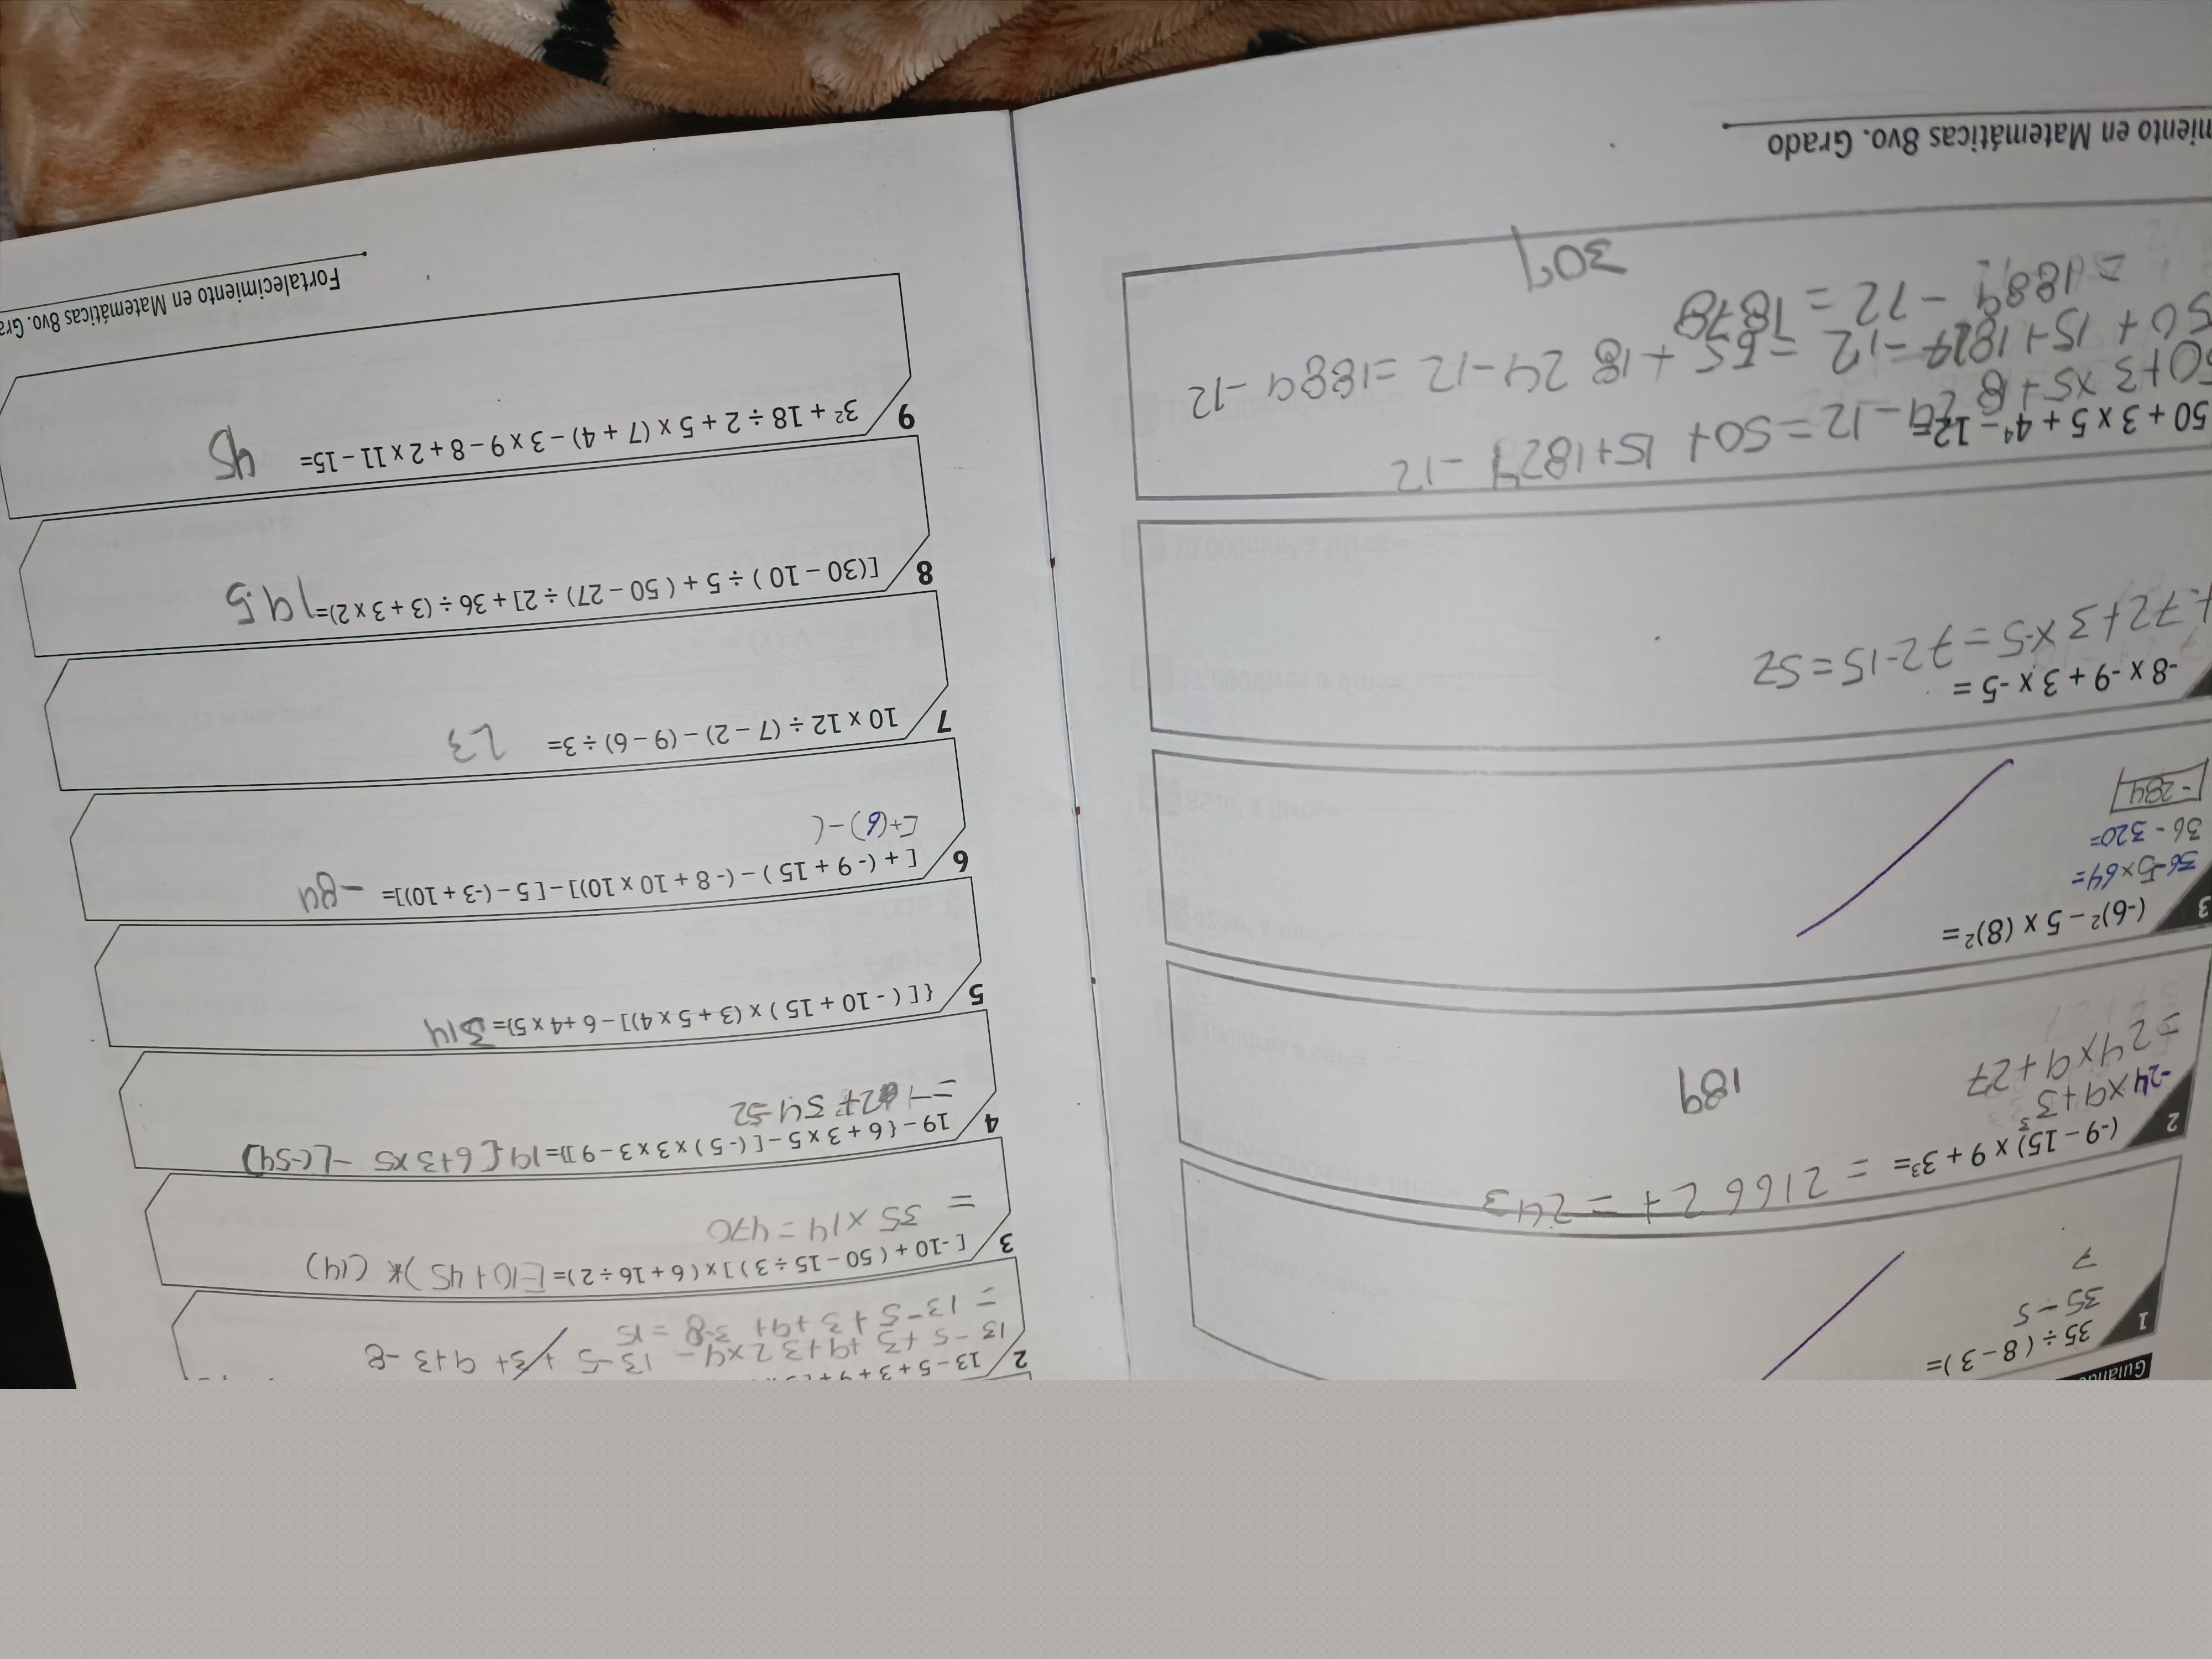 Guiando
1
35 ÷ ( 8 – 3 )=
35 – 5
7
2
(-9 – 15) x 9 + 3³=
= 216
= 243
-24 x 9 + 3³
= 24 x 9 + 27
189
3
(-6)² – 5 x (8)²=
36-5x64=
36 - 320=
-284
-8 x -9 + 3 x -5 =
+72+3x-5=72-15=52
50 + 3 x 5 + 4⁴ – 12=
=50+ 15+1827 -12
50 + 15+1824-12 = 65 + 18 24-12 =1889 -12
= 1889 -72 = 1878
309
miento en Matemáticas 8vo. Grado
2
13 – 5 + 3 + 9 +
13 -5 +3 +9+3 2x4- 13-5 +3+ 9+3 -8
= 13-5+3+9+ 3-8 =15
3
[ -10 + ( 50 – 15 ÷ 3 ) ] x ( 6 + 16 ÷ 2 )= [-10+ 45)* (14)
= 35 x14 = 470
4
19 – { 6 + 3 x 5 – [ (-5 ) x 3 x 3 – 9 ]}=19[6+3x5 -[(-54)]
54-52
5
{ [ ( - 10 + 15 ) x (3 + 5 x 4)] – 6 +4 x 5)= 314
6
[ + (- 9 + 15 ) – (- 8 + 10 x 10)] – [ 5 – (-3 + 10)]= -84
[+(6)-(
7
10 x 12 ÷ (7 – 2) – (9 – 6) ÷ 3= 23
8
[(30 – 10 ) ÷ 5 + ( 50 – 27) ÷ 2] + 36 ÷ (3 + 3 x 2)= 19.5
9
3² + 18 ÷ 2 + 5 x (7 + 4) – 3 x 9 – 8 + 2 x 11 – 15= 45
Fortalecimiento en Matemáticas 8vo. Gra